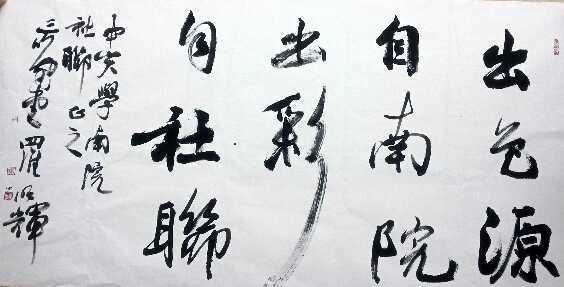 出色源
自南院
出彩
自社聯
中実學南院
社聯正之
羅明輝